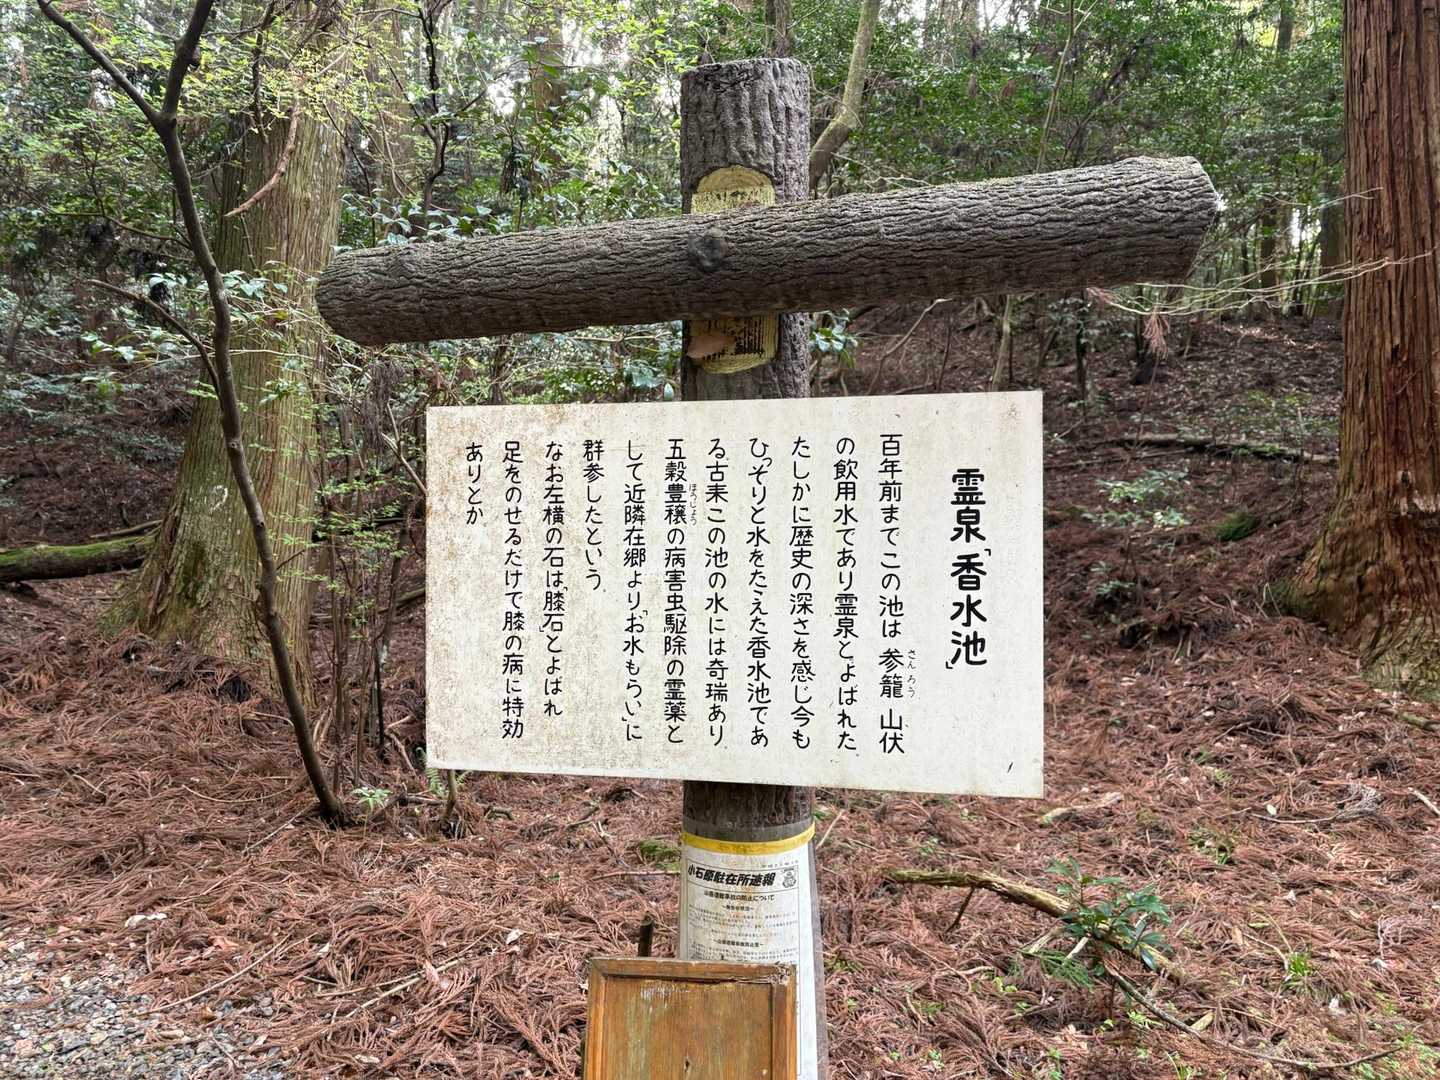 霊泉「香水池」
百年前までこの池は 参籠 山伏
さんろう
の飲用水であり霊泉とよばれた
たしかに歴史の深さを感じ今も
ひっそりと水をたたえた香水池であ
る古来この池の水には奇瑞あり
五穀豊穣の病害虫駆除の霊薬と
ほうじょう
して近隣在郷より「お水もらい」に
群参したという
なお左横の石は「膝石」とよばれ
足をのせるだけで膝の病に特効
ありとか
小石原駐在所速報
山岳遭難事故の防止について